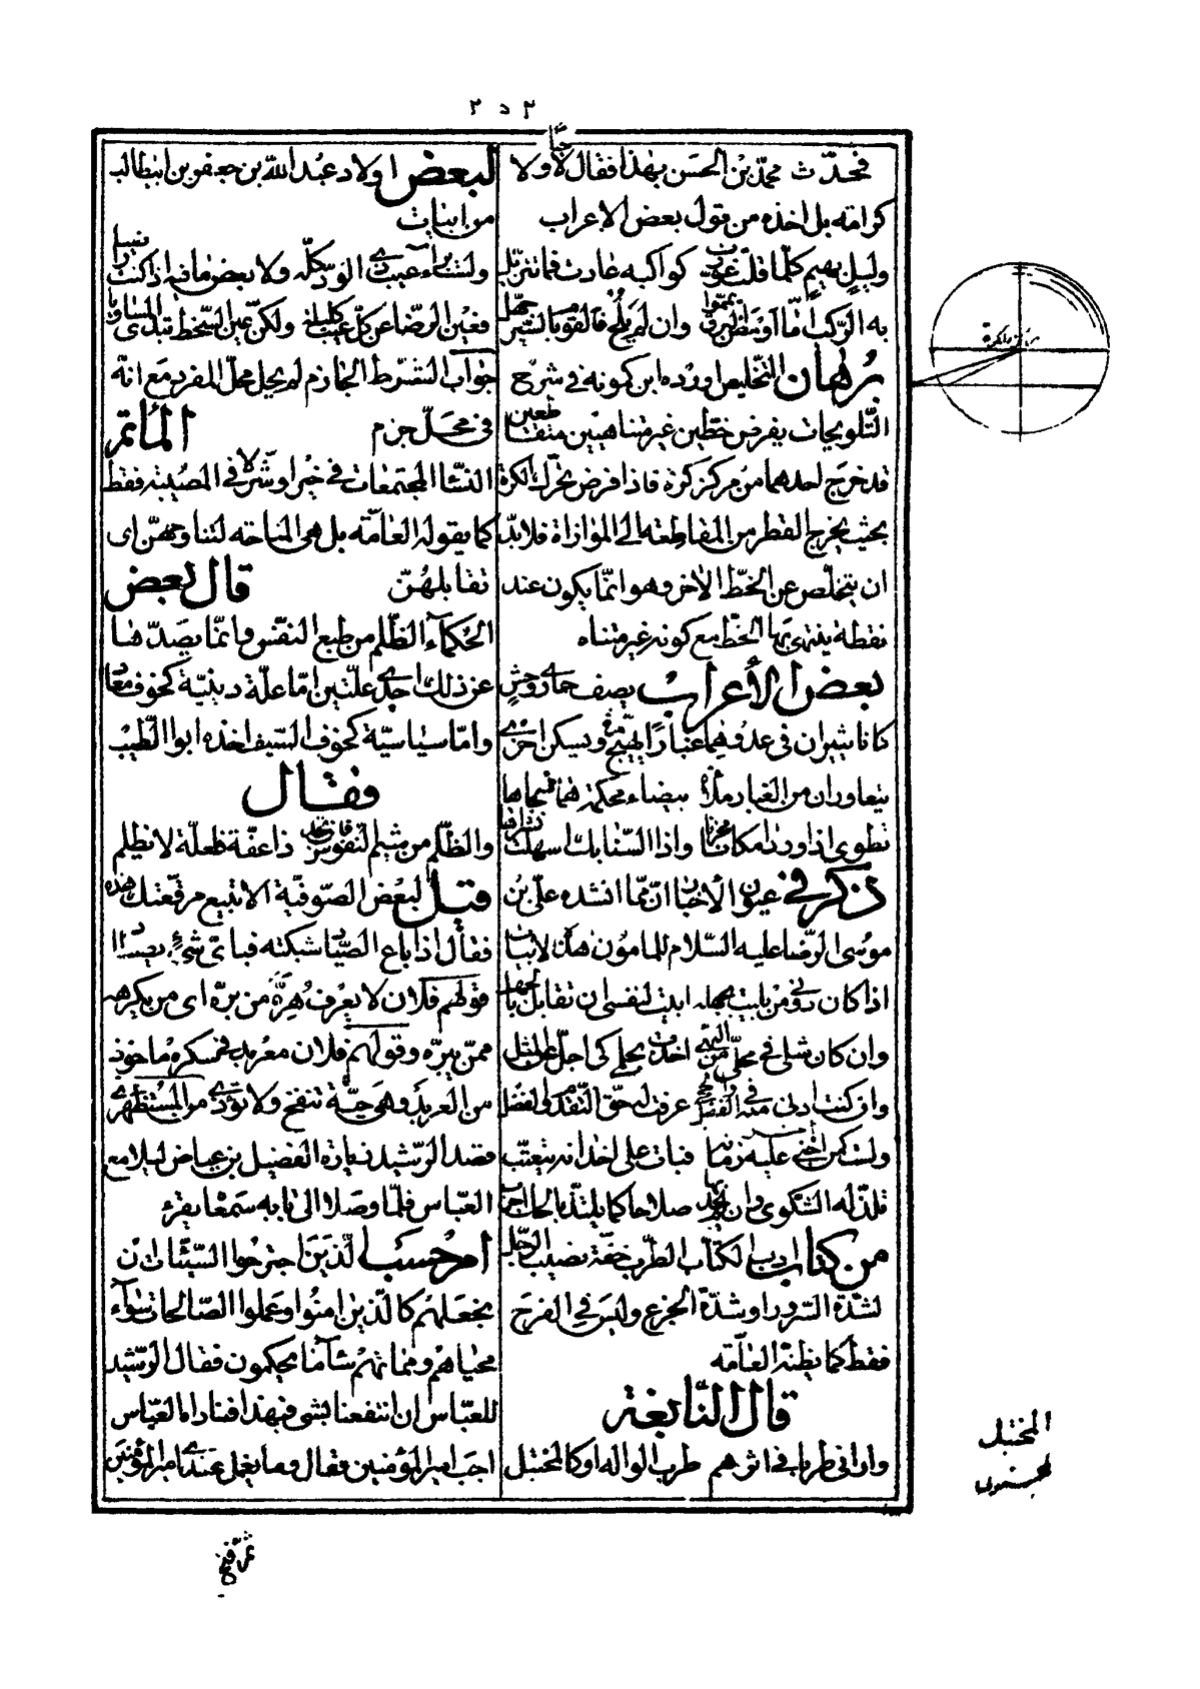 ٢٥٢
فحدّث محمّد بن الحسن بهذا فقال لا ولا
كرامة بل اخذه من قول بعض الاعراب
وليلٍ بهيمٍ كلّما قلت غوّرت كواكبه عادت فما تتزيّل
به الركب امّا اومض البرق يمّموا وان لم يلح فالقوم بالسير جهّل
برهان التخليص اورده ابن كمونه فى شرح
التلويحات يفرض خطين غير متناهيين متقاطعين
قد خرج احدهما من مركز كرة فاذا فرض تحرّك الكرة
بحيث يخرج القطر من المقاطعه الى الموازاة فلا بدّ
ان يتخلّص عن الخطّ الآخر وهو انّما يكون عند
نقطة ينتهى بها الخطّ مع كونه غير متناه
بعض الأعراب يصف حمارى وحشٍ
كانا يثيران فى عدوهما غبارًا يهيّج مرّة ويسكن اخرى
يتعاوران من الغبار ملاءة بيضاء محكمة هما نسجاها
تطوى اذا وردا مكانا محزنا واذا السنابك اسهلت نشراها
ذكر فى عيون الاخبار انّ ممّا انشده علىّ بن
موسى الرضا عليه السلام للمامون هذه الابيات
اذا كان دونى من بليت بجهله ابيت لنفسى ان تقابل بالجهل
وان كان مثلى فى محلّى من النهى اخذت بحلمى كى اجلّ عن المثل
وان كنت ادنى منه فى الفضل والحجى عرفت له حقّ التقدّم والفضل
فبات على اخدانه يتعتّب
تلذّ له الشكوى وان لم يجد بها صلاحا كما يلتذّ بالحكّ اجرب
من كتاب ادب الكتّاب الطرب خفّة تصيب الرجل
لشدّة السرور او شدّة الجزع وليس فى الفرح
فقط كما يظنّه العامّه
قال النّابغة
وارانى طربا فى اثرهم طرب الواله او كالمختبل
لبعض اولاد عبد اللّه بن جعفر بن ابيطالب
من ابيات
ولست براءٍ عيب ذى الودّ كلّه ولا بعض ما فيه اذا كنت راضيا
فعين الرضا عن كلّ عيب كليلة ولكنّ عين السخط تبدى المساويا
جواب الشرط الجازم لم يحلّ محلّ المفرد مع انّه
فى محلّ جزم المأتم
النساء المجتمعات فى خير او شرّ لا فى المصيبة فقط
كما يقوله العامّه بل هى المناحه لتناوحهنّ اى
تقابلهنّ قال بعض
الحكماء الظلم من طبع النفس وانّما يصدّها
عن ذلك احدى علّتين امّا علّة دينيّة كخوف معاد
وامّا سياسيّة كخوف السيف اخذه ابو الطيب
فقال
والظلم من شيم النفوس فان تجد ذا عفّة فلعلّة لا يظلم
قيل لبعض الصوفيّة الا تبيع مرقّعتك هذه
فقال اذا باع الصيّاد شبكته فباىّ شىءٍ يصيد
قولهم فلان لا يعرف هِرّه من برّه اى من يكرهه
ممّن يبرّه وقولهم فلان معربد فى سكره ماخوذ
من العربد وهى حيّة تنفخ ولا تؤذى من المستظهرى
قصد الرشيد زيارة الفضيل بن عياض ليلا مع
العبّاس فلمّا وصلا الى بابه سمعا يقرء
ام حسب الّذين اجترحوا السيّئات ان
نجعلهم كالّذين امنوا وعملوا الصّالحات سواء
محياهم ومماتهم ساء ما يحكمون فقال الرشيد
للعبّاس ان انتفعنا بشى فبهذا فناداه العبّاس
اجب امير المؤمنين فقال وما يعمل عندى امير المؤمنين
المختبل